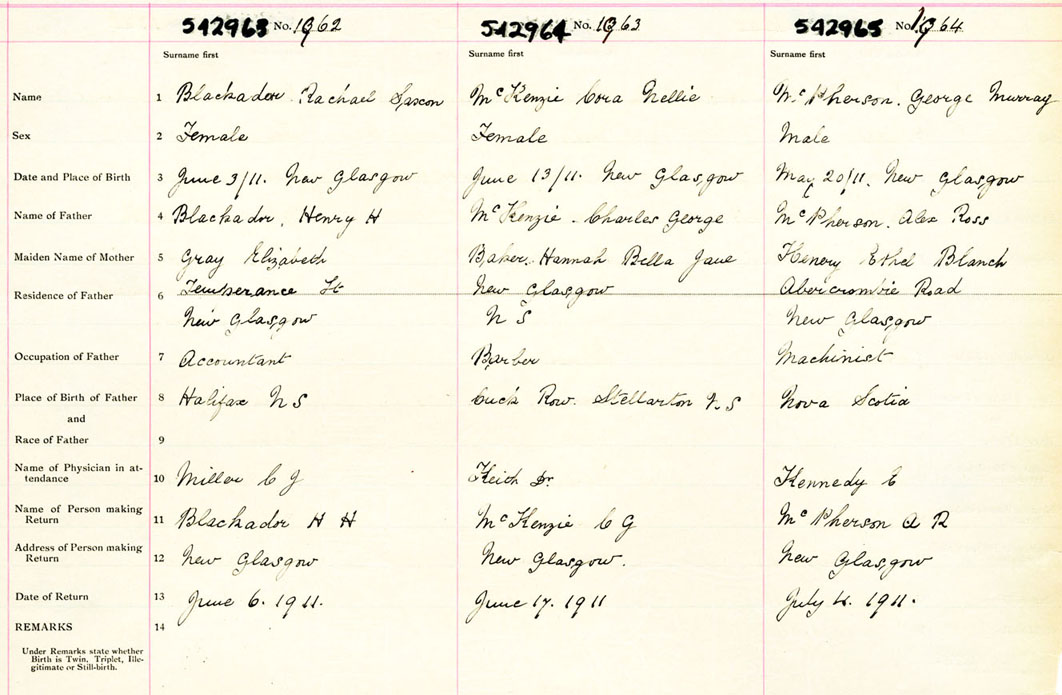 542963 No. 1962 542964 No. 1963 542965 No. 1964
Surname first Surname first Surname first
Name 1 Blackador. Rachael Saxon McKenzie Cora Nellie McPherson. George Murray
Sex 2 Female Female Male
Date and Place of Birth 3 June 3/11. New Glasgow June 13/11. New Glasgow May 20/11. New Glasgow
Name of Father 4 Blackador, Henry H McKenzie. Charles George McPherson. Alex Ross
Maiden Name of Mother 5 Gray Elizabeth Baker. Hannah Bella Jane Henery Ethel Blanch
Residence of Father 6 Temperance St New Glasgow Abercrombie Road
New Glasgow N S New Glasgow
Occupation of Father 7 Accountant Barber Machinist
Place of Birth of Father 8 Halifax N S Row. Stellarton N. S Nova Scotia
and
Race of Father 9
Name of Physician in at-
tendance 10 Miller C J Keith Dr. Kennedy E
Name of Person making
Return 11 Blackador H H McKenzie C G McPherson A R
Address of Person making
Return 12 New Glasgow New Glasgow. New Glasgow
Date of Return 13 June 6. 1911. June 17. 1911 July 4. 1911.
REMARKS 14
Under Remarks state whether
Birth is Twin, Triplet, Ille-
gitimate or Still-birth.